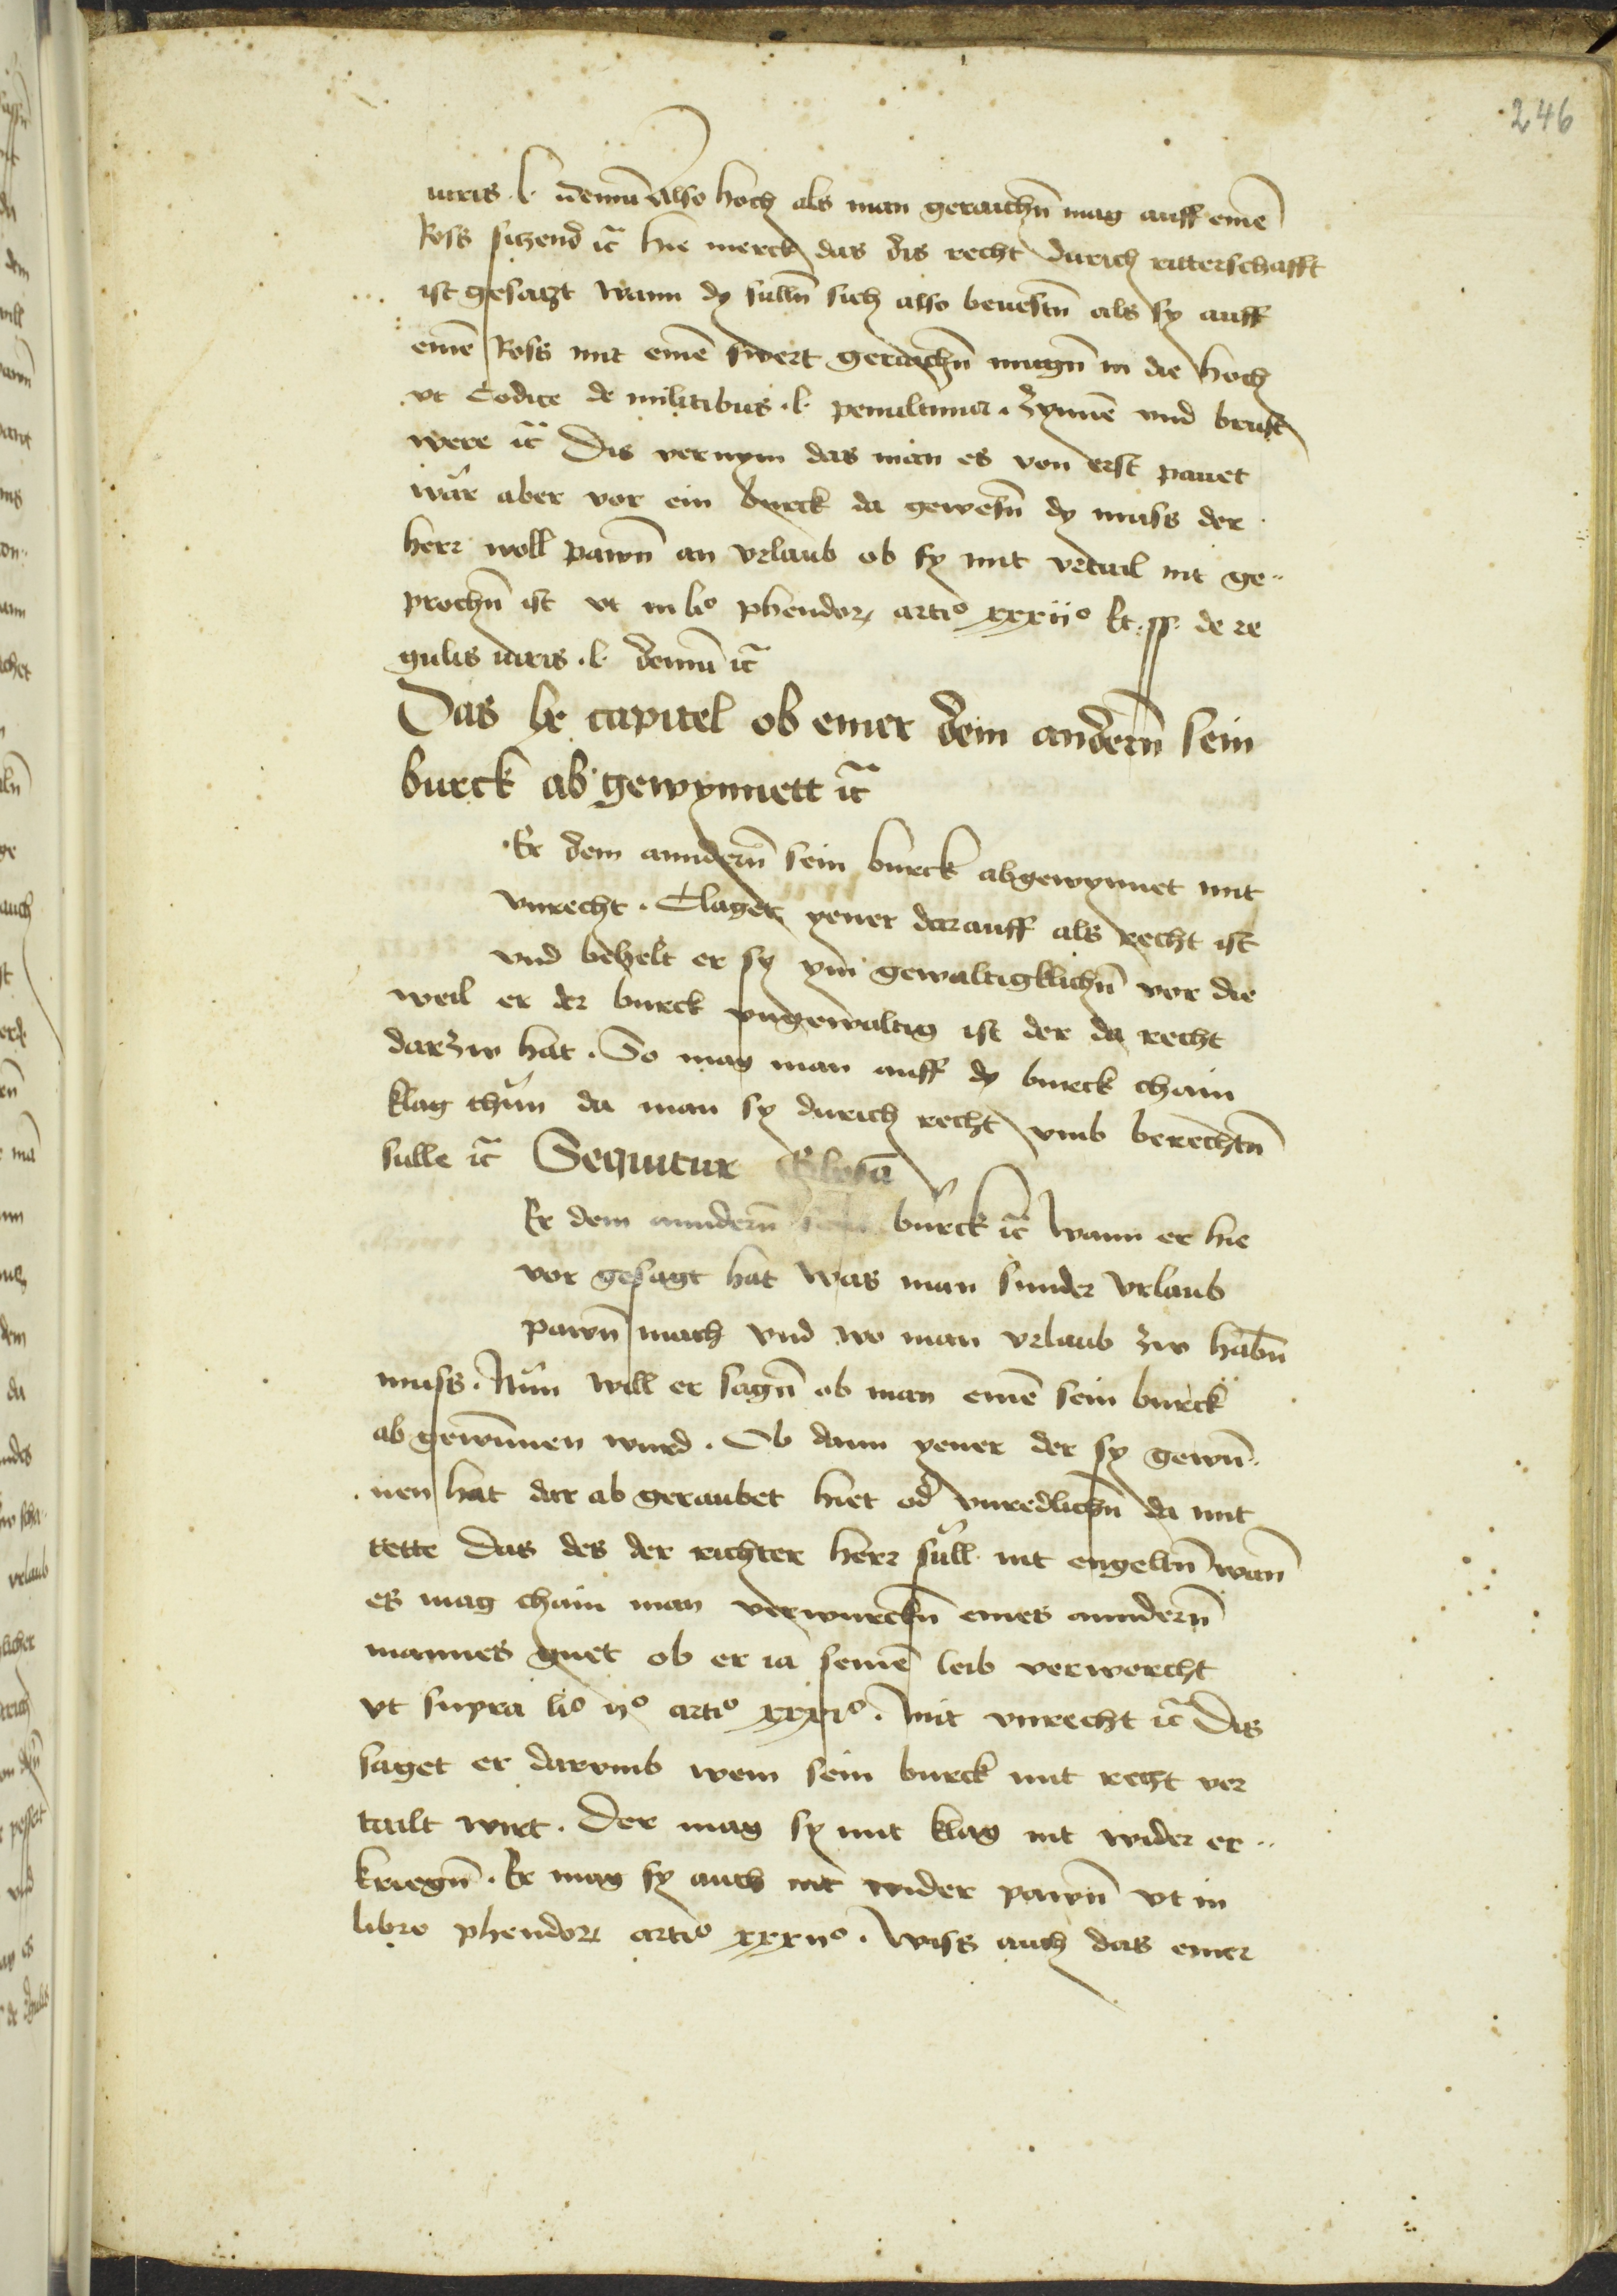 246
iuris .l. nemini Also hoch als man geraichn̄ mag auff eine͞
Ross sitzend ꝛc̄ hie merck das dis recht durich ritterschafft
ist gesatzt wann dy sulln̄ sich also beuestn̄ als sy auff
eine͞ Ross mit eine͞ swert geraichn̄ mugn̄ in die hoch
vt Codice de militibus .l. penultima . Zynne͞ vnd brust
were ꝛc̄ Dis vernym das man es von erst pauet
wår aber vor ein burck da gewesn̄ dy muss der
herr woll pawn̄ an vrlaub ob sy mit vrtail nit ge..
prochn̄ ist vt in lib͞o phendor͛ artic͞o xxxii͞o Et .ff. de re
gulis iuris .l. nemini ꝛc̄
Das lx capitel ob einer dem andern̄ sein
burck ab gewynnett ꝛc̄
Er dem anndern̄ sein burck abgewynnet mit
vnrecht . Claget yener darauff als recht ist
vnd behelt er sy ym gewaltigklichn̄ vor die
weil er der burck vngewaltig ist der da recht
darzw hat . So mag man auff dy burck chain
klag thun da man sy durich recht vmb berechtn̄
sulle ꝛc̄ Sequitur Glosa
Er dem anndern̄ sein burck ꝛc̄ wann er hie
vor gesagt hat was man sunder vrlaub
pawn̄ mach vnd wo man vrlaub zw habn̄
muss . Nun will er sagn̄ ob man eine͞ sein burck
ab gewunnen wurd . Ob dann yener der sy gewun̄.
nen hat dar ab geraubet hiet od͛ vnredlichn̄ da mit
tette Das des der richter herr sull nit engeltn̄ wan̄
es mag chain man verwurckn̄ eines anndern̄
mannes guet ob er ia seine͞ leib verworcht
vt supra lib͞o ii͞o artic͞o xxxi͞o . mit vnrecht ꝛc̄ Dis
saget er darvmb wem sein burck mit recht ver
tailt wirt . Der mag sy mit klag nit wider er..
kriegn̄ . Er mag sy auch nit wider pawn̄ vt in
libro phendor͛ artic͞o xxxii͞o . wiss auch das einer